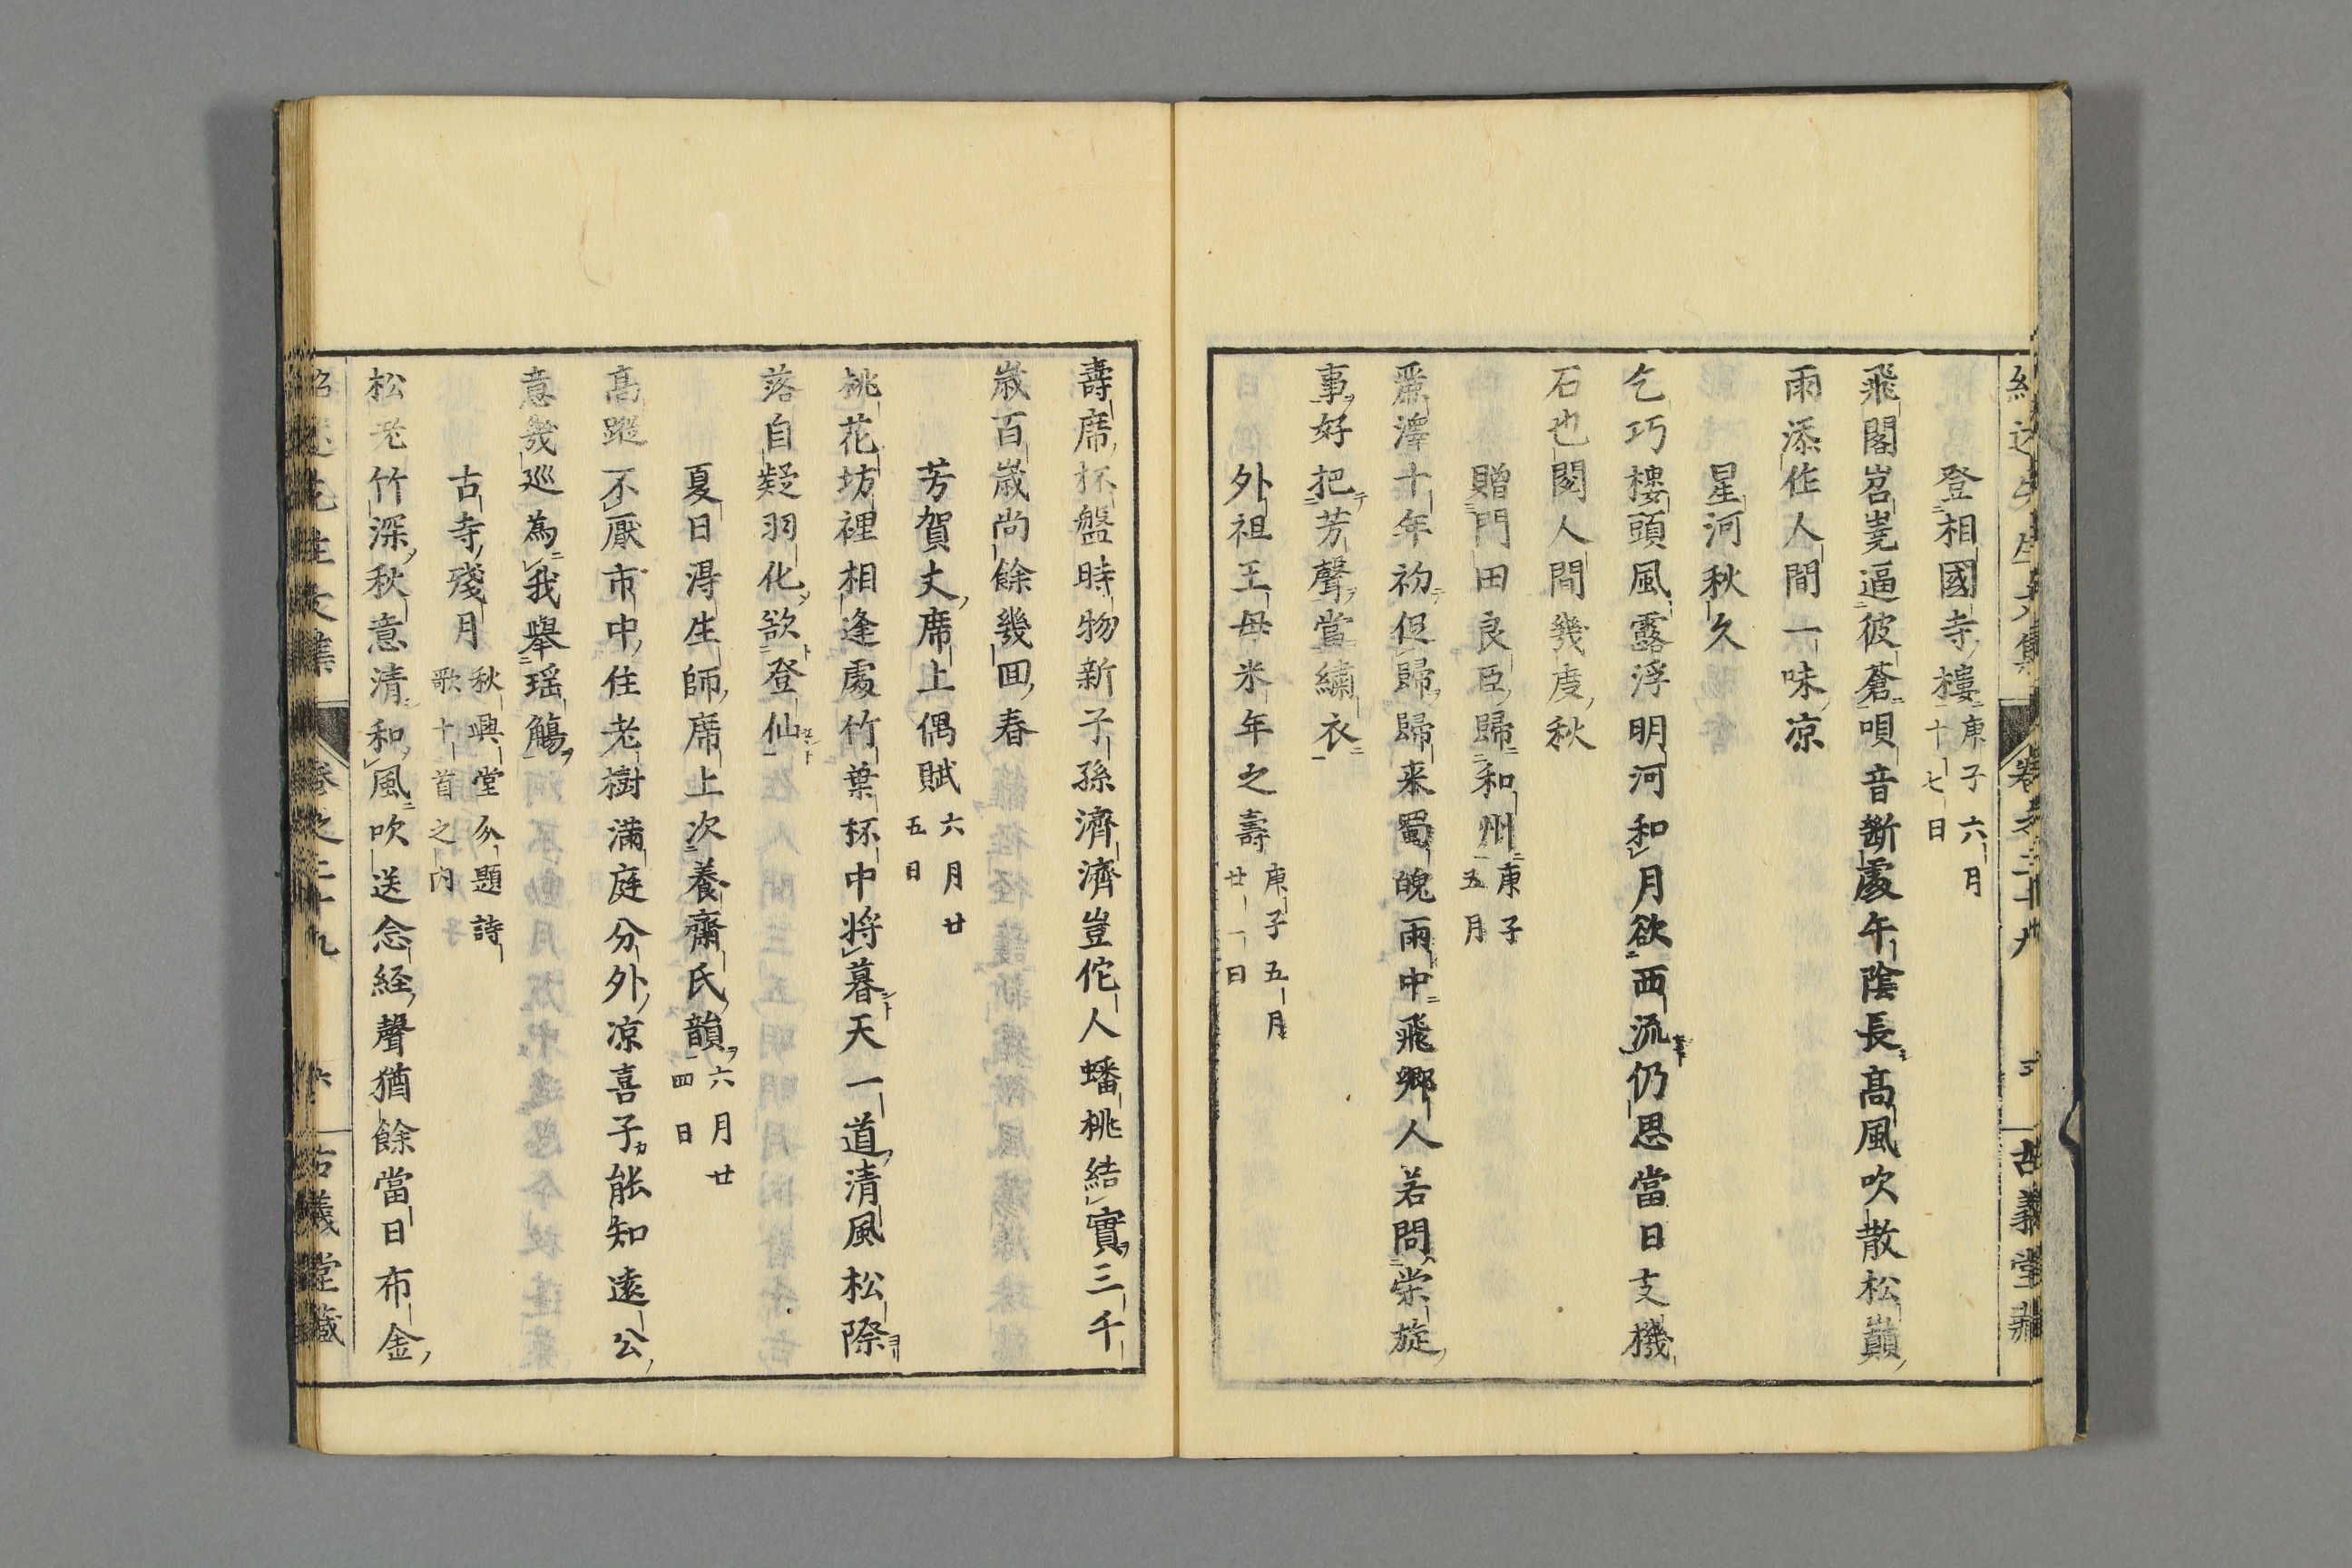 登相國寺樓庚子六月十七日
飛閣岧嶤逼彼蒼唄音斷處午陰長高風吹散松巓
雨添作人間一味凉
星河秋久
乞巧樓頭風露浮明河和月欲西流仍思當日支機
石也閱人間幾度秋
贈門田良臣歸和州庚子五月
麗澤十年初促歸歸来蜀魄雨中飛鄉人若問栄旋
事好把芳聲當繡衣
外祖王母米年之壽庚子五月廿一日
壽席杯盤時物新子孫濟濟豈佗人蟠桃結實三千
歳百歳尚餘幾回春
芳賀丈席上偶賦六月廿五日
桃花坊裡相逢處竹葉杯中將暮天一道清風松際
落自疑羽化欲登仙
夏日淂生師席上次養齋氏韻六月廿四日
高蹤不厭市中住老樹滿庭分外凉喜子能知遠公
意幾巡為我擧瑶觴
古寺殘月秋興堂分題詩歌十首之内
松老竹深秋意清和風吹送念経聲猶餘當日布金
紹述先生文集 卷之二十九 古義堂藏